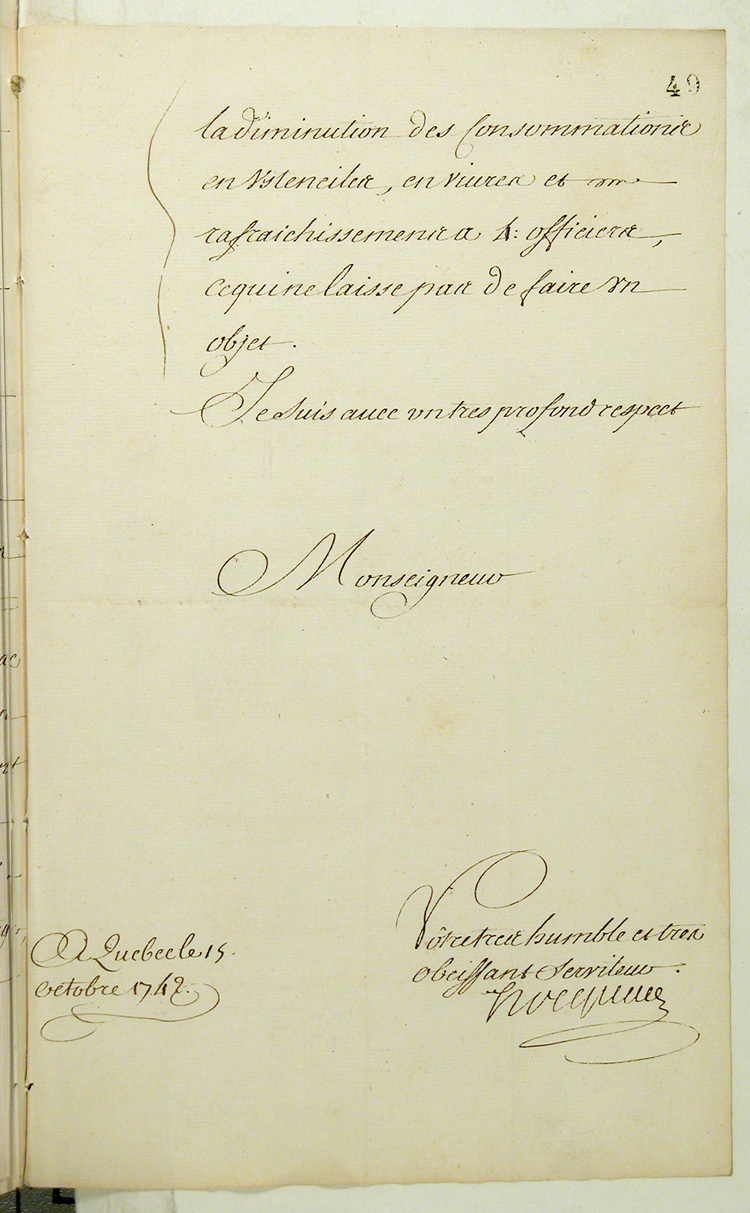 49
la diminution des Consommations
en Vstenciles, en viures et
rafraichissements a 4: officiers,
ce qui ne laisse pas de faire vn
objet.
Je suis auec vn tres profond respect
Monseigneur
Vôtre tres humble et tres
obeissant Serviteur.
Hocquart
A Quebec le 15
octobre 1742.